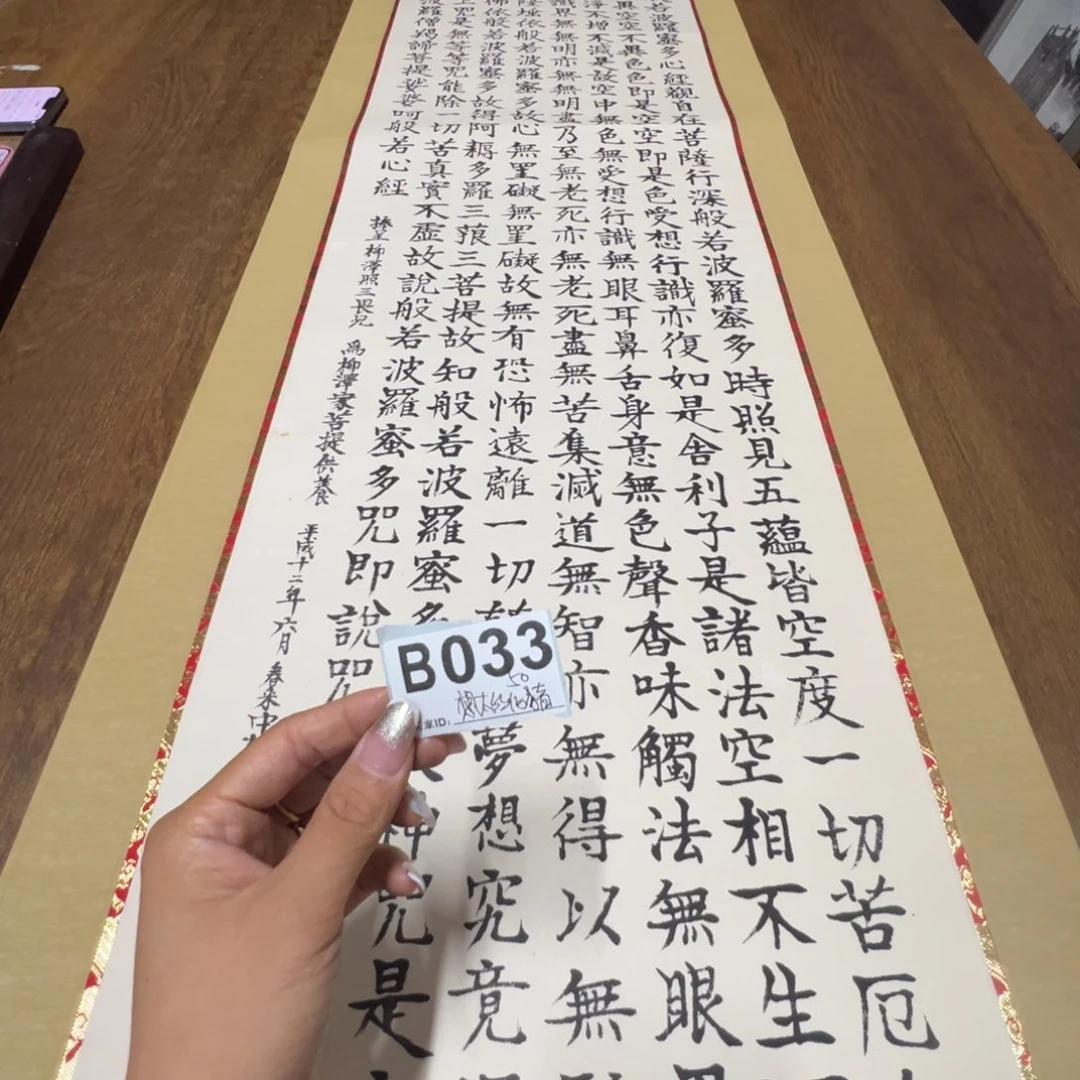 若波羅蜜多心經觀自在菩薩行深般若波羅蜜多時照見五蘊皆空度一切苦厄
異空空不異色色即是空空即是色受想行識亦復如是舍利子是諸法空相不生
淨不增不減是故空中無色無受想行識無眼耳鼻舌身意無色聲香味觸法無眼界
識界無無明亦無無明盡乃至無老死亦無老死盡無苦集滅道無智亦無得以無
薩埵依般若波羅蜜多故心無罣礙無罣礙故無有恐怖遠離一切夢想究竟
佛依般若波羅蜜多故得阿耨多羅三藐三菩提故知般若波羅蜜多神咒是
上咒是無等等咒能除一切苦真實不虛故說般若波羅蜜多咒即說咒
波羅僧羯諦菩提娑婆呵般若心經
捧呈柳澤照三畏兄 為柳澤家菩提供養 平成十二年六月
B033
50
家ID: